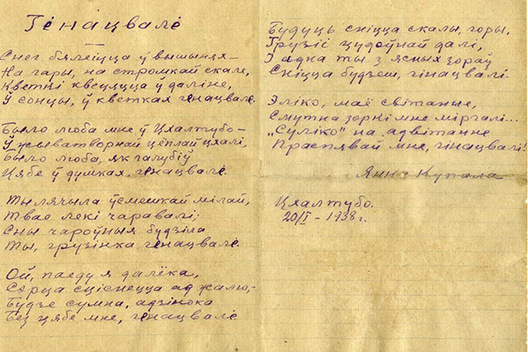 Гена́цвале
Снег бялеіцца ў вышынях —
На гары, на стромкай скале,
Кветкі квецяцца ў даліне,
Ў сонцы, ў кветках генацвале.
Было люба мне ў Цхалтубо —
Ў жыватворнай цёплай цхалі,
Было люба, як галубіў
Цябе ў думках, генацвале.
Ты лячыла ўсмешкай мілай,
Твае лекі чаравалі;
Сны чароўныя будзіла
Ты, грузінка, генацвале.
Ой, паеду я далёка,
Сэрца сціснецца ад жалю, —
Будзе сумна, адзінока
Без цябе мне, генацвале.
Будуць сніцца скалы, горы,
Грузіі цудоўнай далі,
І адна ты з ясных зораў
Сніцца будзеш, гінацвалі.
Эліко, маё світанне,
Смутна зоркі мне міргалі...
„Суліко" на адвітанне
Праспявай мне, гінацвалі!
Янка Купала
Цхалтубо.
20/I - 1938 г.